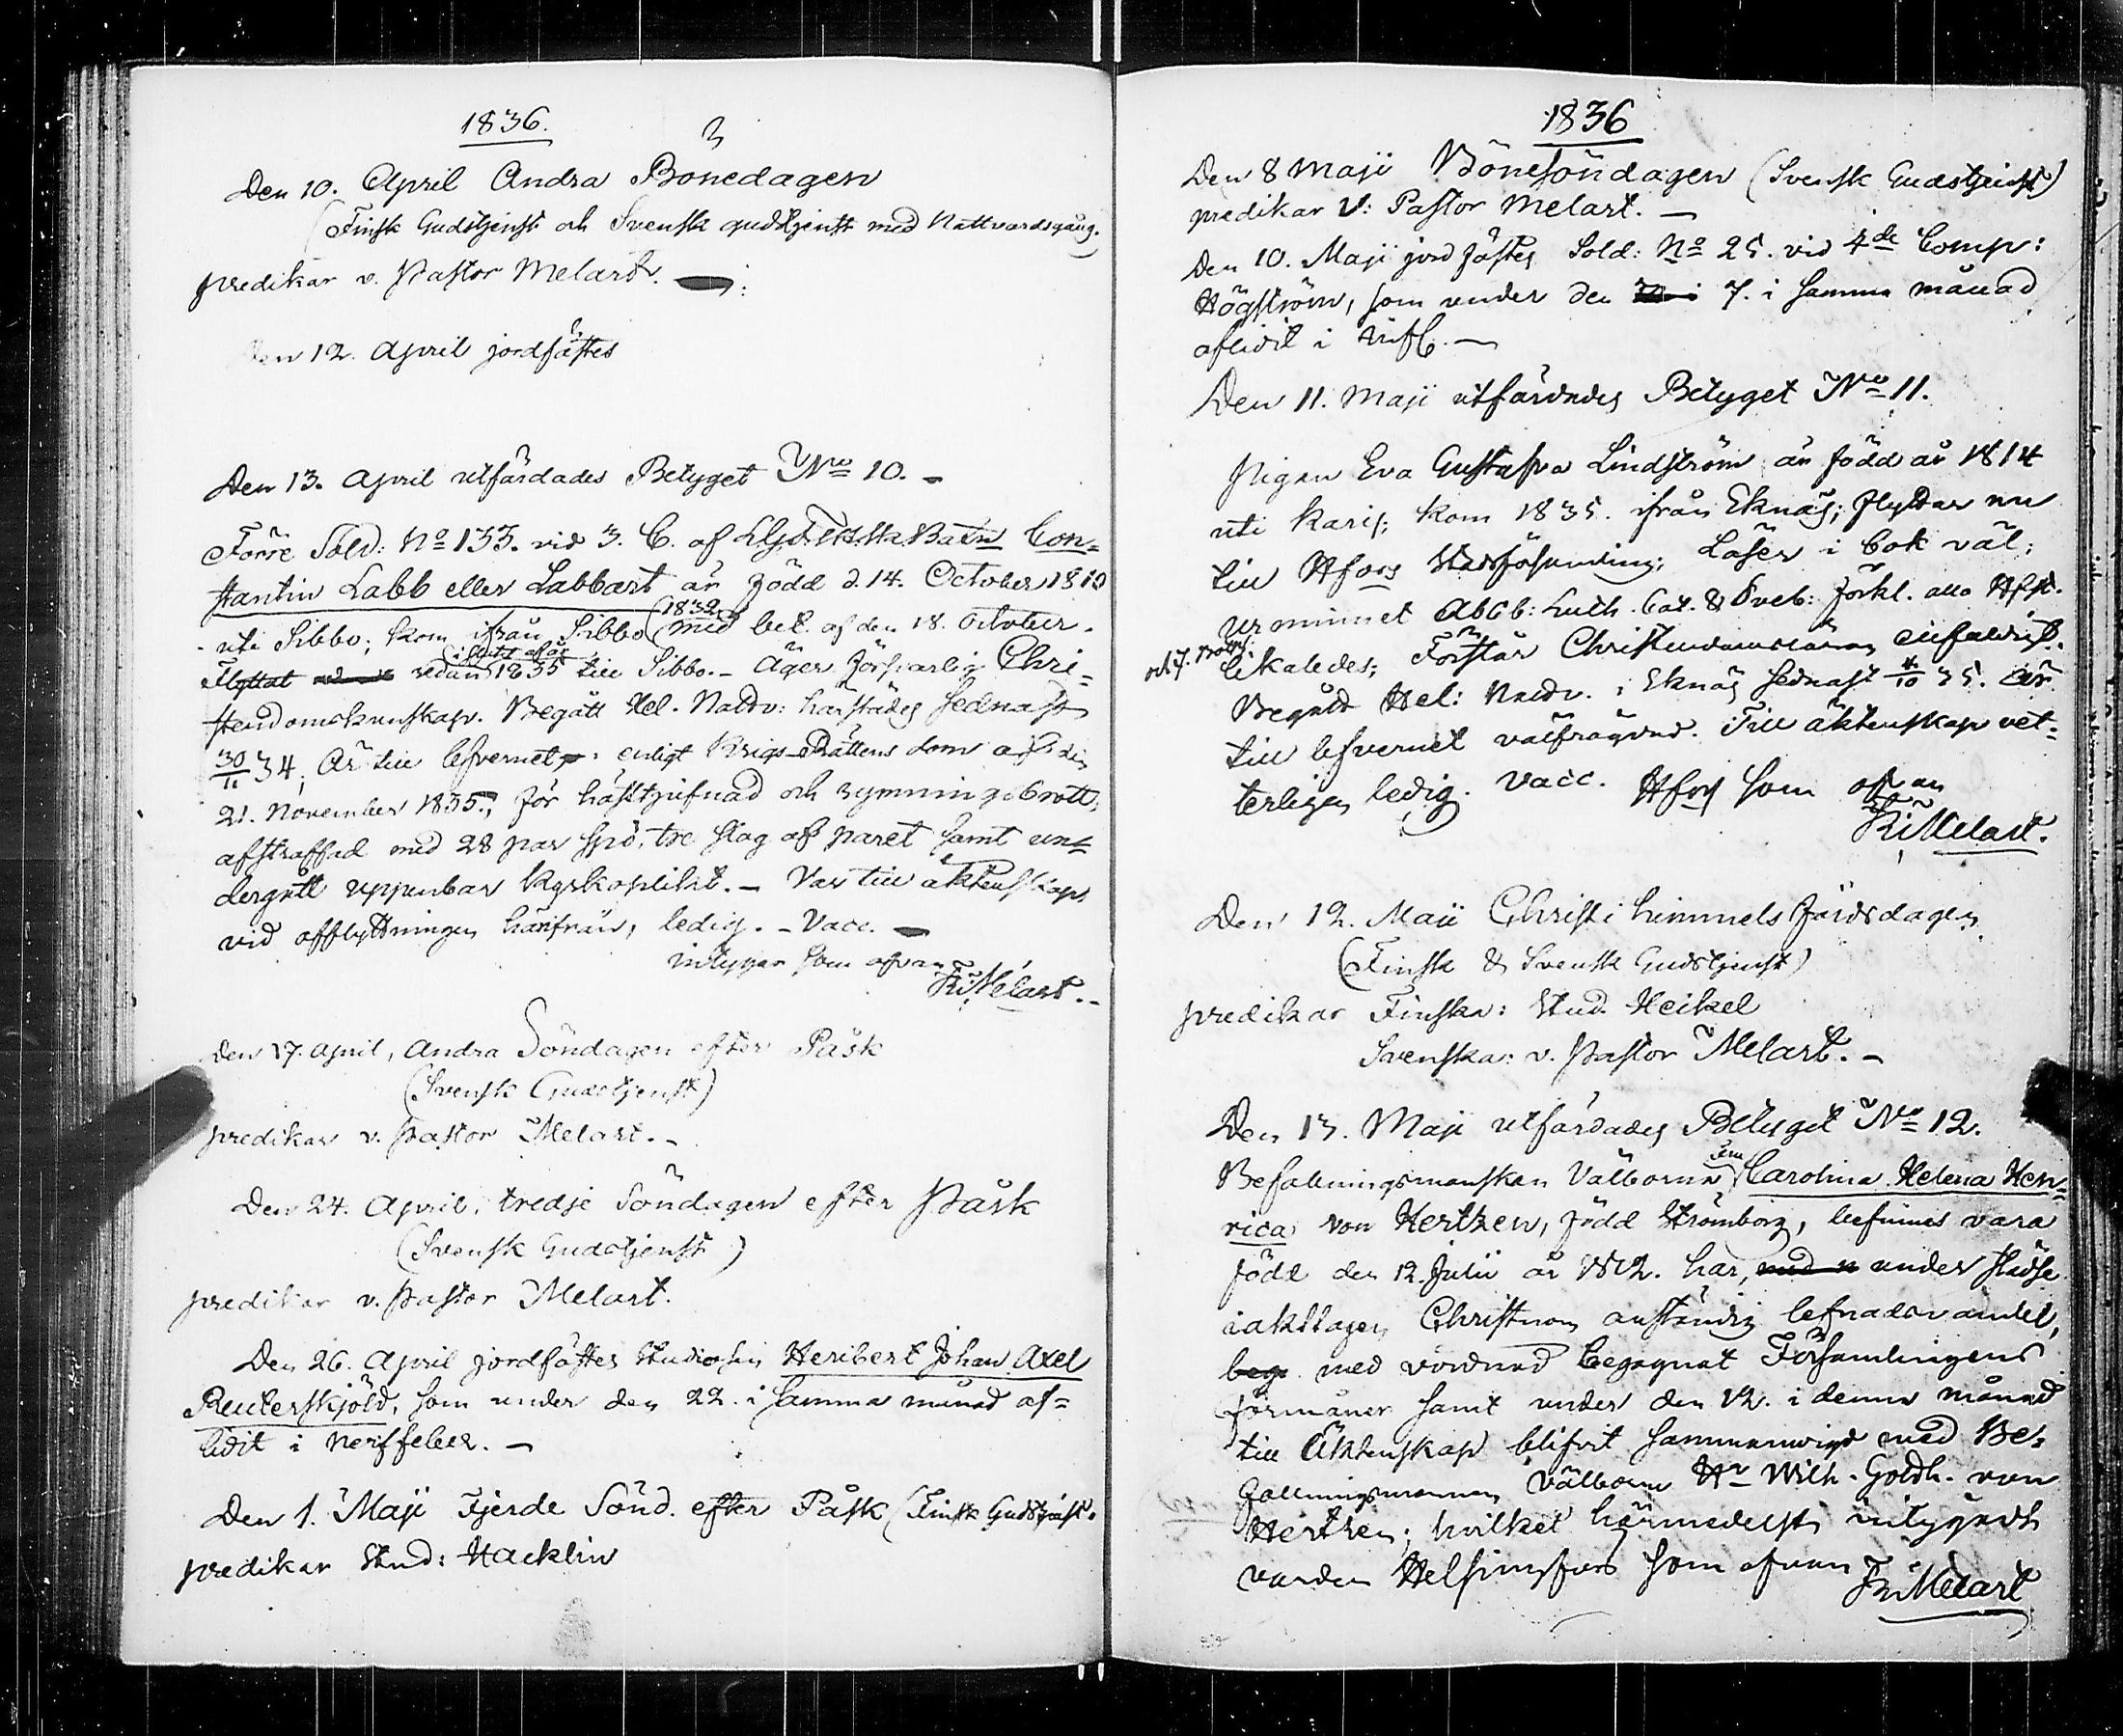 1836.
Den 10. April Andra Bönedagen
(Finsk Gudstjenst och Svensk gudstjenst med Nattvardsgång.)
predikar v. Pastor Melart.
Den 12. April jordfästes
Den 13. April utfärdades Betyget No 10. -
Förre Sold: No 133. vid 3. C. af Con=
stantin Labb eller Labbart är född d. 14. October 1810
uti Sibbo; kom ifrån Sibbo (1832) med bet. af den 18. October.
Flyttat sedan i slutet af år 1835 till Sibbo. - Äger försvarlig Chri=
stendomskunskap. Begått Hel. Nattv: härstädes sednast
30/11 34; Är till lefvernet, enligt Krigs-Rättens dom af den
21. November 1835, för hästtjufnad och rymningsbrott,
afstraffad med 28 par spö, tre slag af paret samt un=
dergått uppenbar kyrkoplikt. - Var till äktenskap
vid afflyttningen härifrån, ledig. - Vacc.
intygar som ofvan
Melart. -
Den 17. April, Andra Söndagen efter Påsk
(Svensk Gudstjenst)
predikar v. Pastor Melart. -
Den 24. April, tredje Söndagen efter Påsk
(Svensk Gudstjenst)
predikar v. Pastor Melart.
Den 26. April jordfästes Studiosen Heribert Johan Axel
Reuterskjöld, som under den 22. i samma månad af=
lidit i Nerffeber. -
Den 1. Maji Fjerde Sönd. efter Påsk (Finsk Gudstjenst.
predikar Stud: Hacklin
1836
Den 8 Maji Bönesöndagen (Svensk Gudstjenst)
predikar V: Pastor Melart. -
Den 10. Maji jordfästes Sold: No 25. vid 4de Comp:
Högström, som under den 7. i samma månad
aflidit i
Den 11. Maji utfärdades Betyget No 11.
Pigan Eva Gustafva Lindström är född år 1814
uti Karis; kom 1835. ifrån Eknäs; flyttar nu
till Hfors Stadsförsamling; Läser i bok väl;
ur minnet Abcb: Luth. Cat. & Sveb: förkl. alla Hfst.
likaledes; Förstår Christendomsläran enfaldigt.
Begått Hel: Nattv. i Eknäs sednast 4/10 35. är
till lefvernet välfrägdad. Till äktenskap vet=
terligen ledig. Vacc. Hfors som ofvan
Melart.
Den 12. Maji Christi himmelsfärdsdagen
(Finsk & Svensk Gudstjenst)
predikar Finska: Stud. Heikel
Svenska: v. Pastor Melart. -
Den 13. Maji utfärdades Betyget No 12.
Befallningsmanskan Välborna Fru Carolina Helena Hen=
rica von Hertzen, född Strömborg, befinnes vara
född den 12. Julii år 1812. har, under städse
iakttagen Christnom anständig lefnadsvandel,
med vördnad begagnat Församlingens
förmåner samt under den 12. i denna månad
till Äktenskap blifvit sammanvigd med Be=
fallningsmannen Välborne Hr Wilh. Gotth. von
Hertzen; hvilket härmedelst intygadt
varder Helsingfors som ofvan
Melart